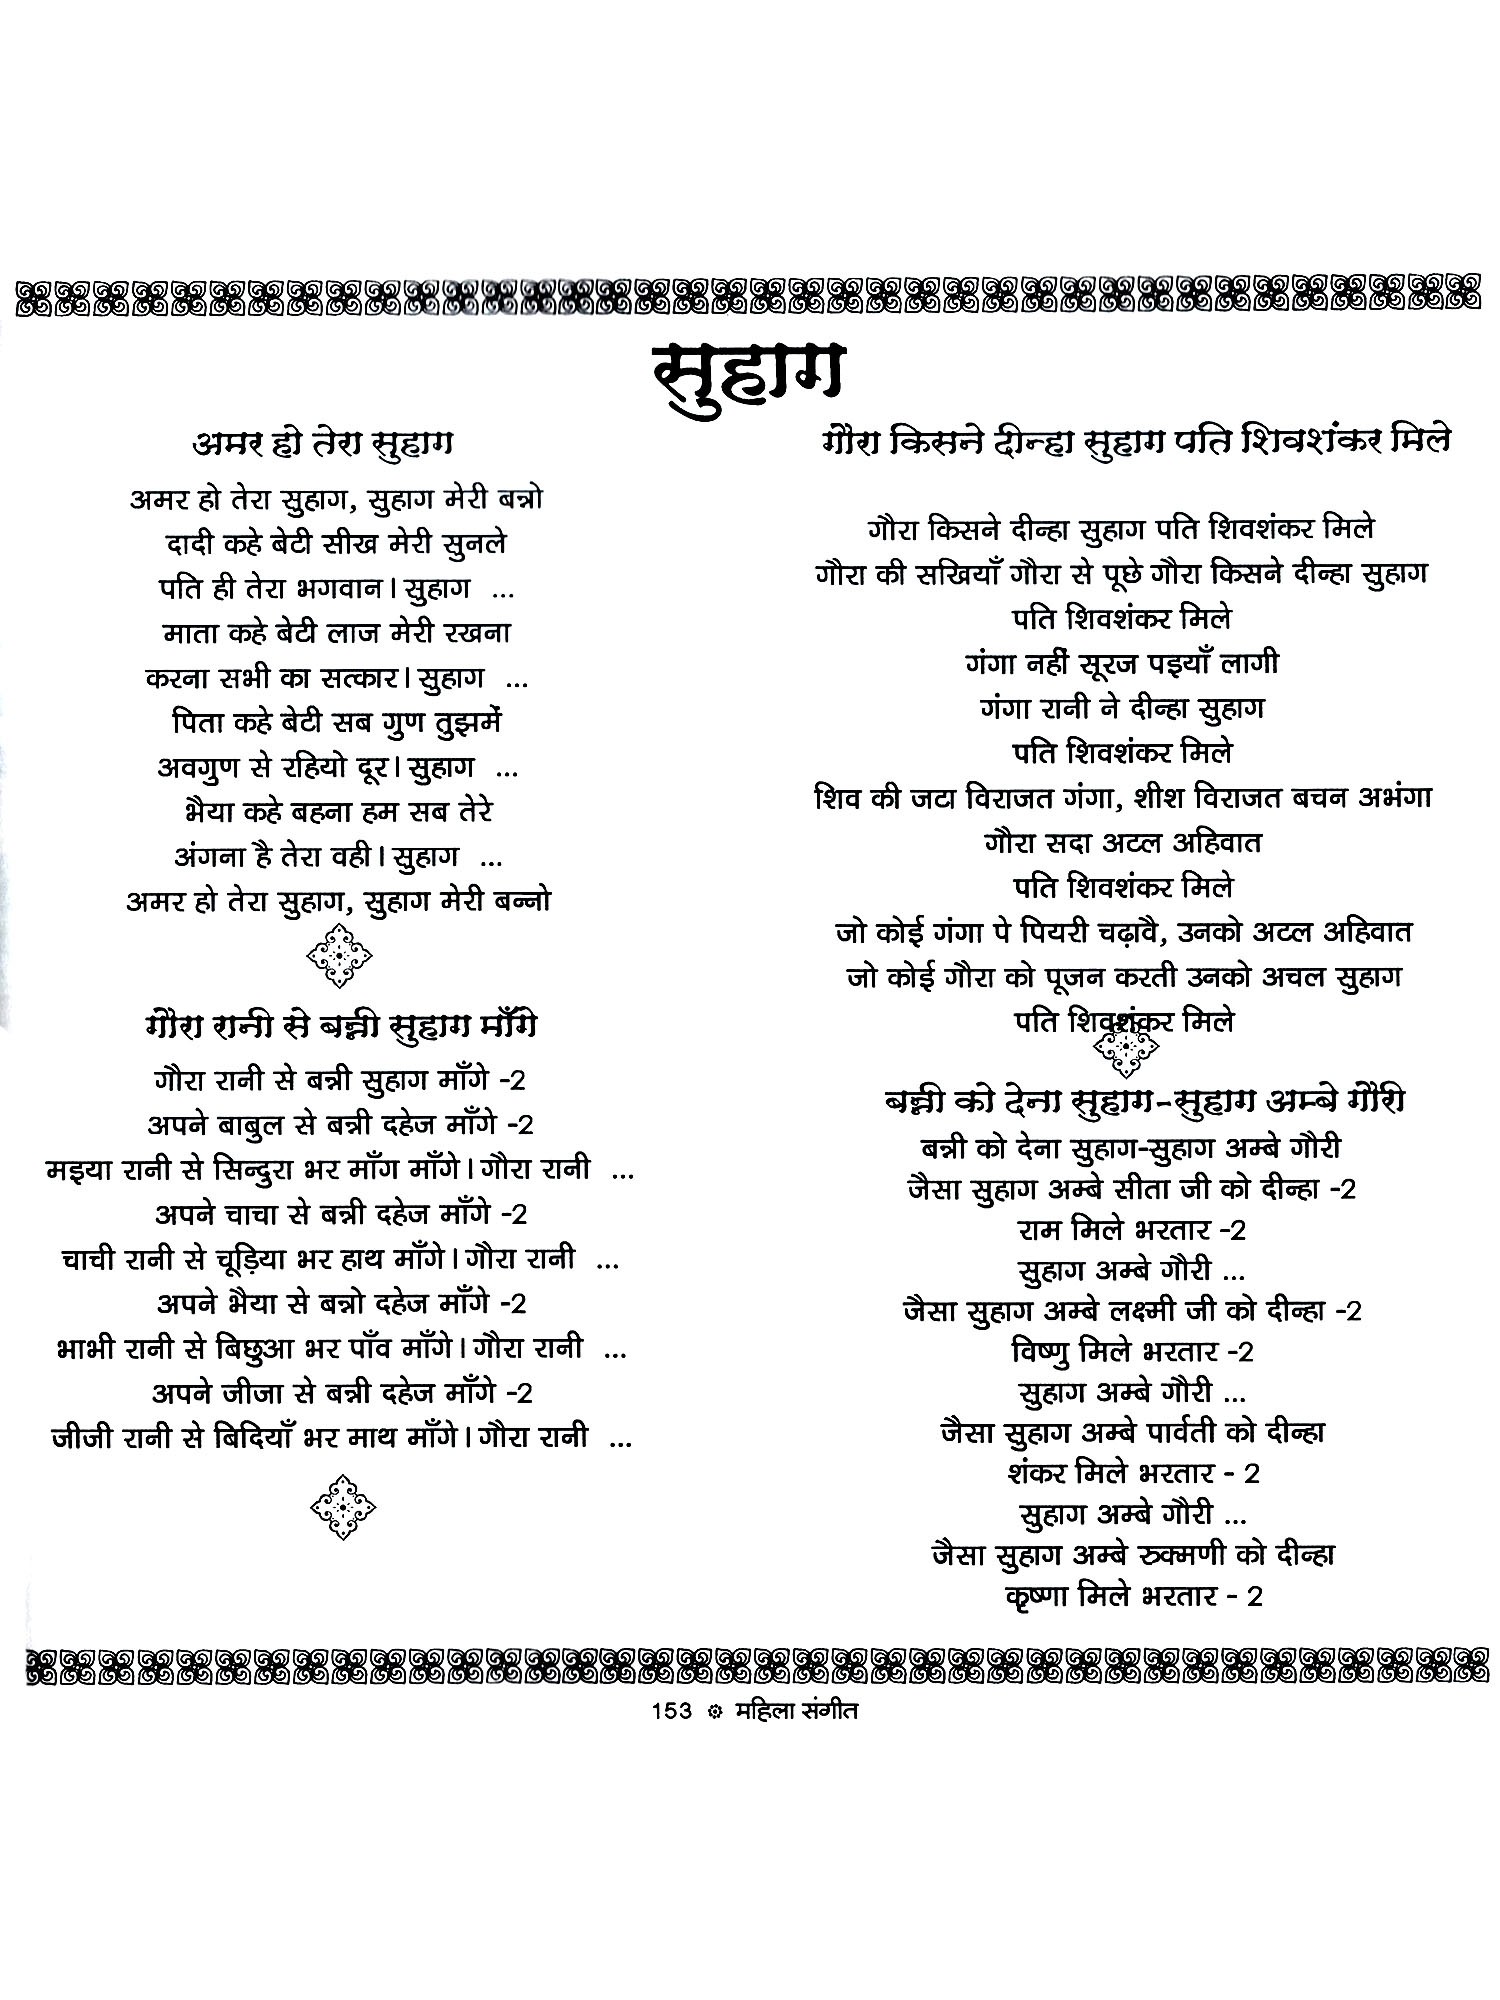 सुहाग
अमर हो तेरा सुहाग
अमर हो तेरा सुहाग, सुहाग मेरी बन्नो
दादी कहे बेटी सीख मेरी सुनले
पति ही तेरा भगवान। सुहाग ...
माता कहे बेटी लाज मेरी रखना
करना सभी का सत्कार। सुहाग ...
पिता कहे बेटी सब गुण तुझमें
अवगुण से रहियो दूर। सुहाग ...
भैया कहे बहना हम सब तेरे
अंगना है तेरा वही। सुहाग ...
अमर हो तेरा सुहाग, सुहाग मेरी बन्नो
गौरा रानी से बन्नी सुहाग माँगे
गौरा रानी से बन्नी सुहाग माँगे -2
अपने बाबुल से बन्नी दहेज माँगे -2
मइया रानी से सिन्दुरा भर माँग माँगे। गौरा रानी ...
अपने चाचा से बन्नी दहेज माँगे -2
चाची रानी से चूड़िया भर हाथ माँगे। गौरा रानी ...
अपने भैया से बन्नो दहेज माँगे -2
भाभी रानी से बिछुआ भर पाँव माँगे। गौरा रानी ...
अपने जीजा से बन्नी दहेज माँगे -2
जीजी रानी से बिदियाँ भर माथ माँगे। गौरा रानी ...
गौरा किसने दीन्हा सुहाग पति शिवशंकर मिले
गौरा किसने दीन्हा सुहाग पति शिवशंकर मिले
गौरा की सखियाँ गौरा से पूछे गौरा किसने दीन्हा सुहाग
पति शिवशंकर मिले
गंगा नहीं सूरज पइयाँ लागी
गंगा रानी ने दीन्हा सुहाग
पति शिवशंकर मिले
शिव की जटा विराजत गंगा, शीश विराजत बचन अभंगा
गौरा सदा अटल अहिवात
पति शिवशंकर मिले
जो कोई गंगा पे पियरी चढ़ावै, उनको अटल अहिवात
जो कोई गौरा को पूजन करती उनको अचल सुहाग
पति शिवशंकर मिले
बन्नी को देना सुहाग-सुहाग अम्बे गौरी
बन्नी को देना सुहाग-सुहाग अम्बे गौरी
जैसा सुहाग अम्बे सीता जी को दीन्हा -2
राम मिले भरतार -2
सुहाग अम्बे गौरी ...
जैसा सुहाग अम्बे लक्ष्मी जी को दीन्हा -2
विष्णु मिले भरतार -2
सुहाग अम्बे गौरी ...
जैसा सुहाग अम्बे पार्वती को दीन्हा
शंकर मिले भरतार - 2
सुहाग अम्बे गौरी ...
जैसा सुहाग अम्बे रुक्मणी को दीन्हा
कृष्णा मिले भरतार - 2
153 ❁ महिला संगीत